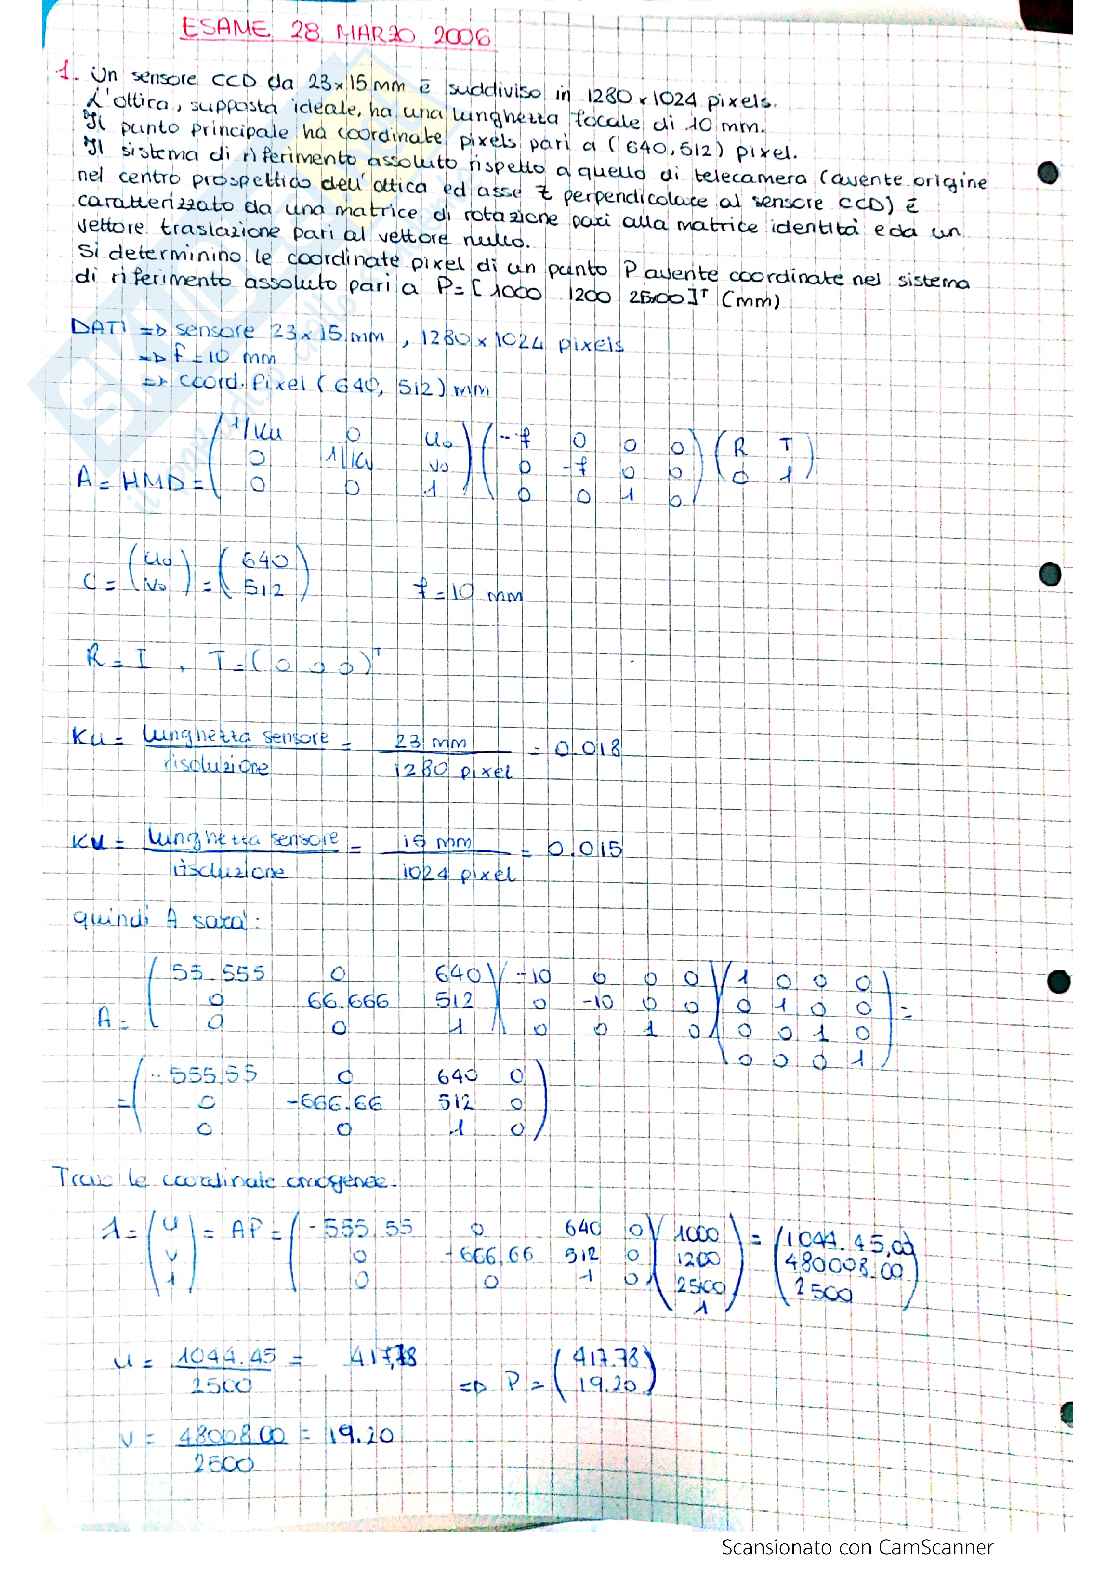 ESAME 28 MARZO 2006
1. Un sensore CCD da 23x15 mm è suddiviso in 1280 x 1024 pixels.
L'ottica, supposta ideale, ha una lunghezza focale di 10 mm.
Il punto principale ha coordinate pixels pari a (640,512) pixel.
Il sistema di riferimento assoluto rispetto a quello di telecamera (avente origine
nel centro prospettico dell'ottica ed asse z perpendicolare al sensore CCD) è
caratterizzato da una matrice di rotazione pari alla matrice identità e da un
vettore traslazione pari al vettore nullo.
Si determinino le coordinate pixel di un punto P avente coordinate nel sistema
di riferimento assoluto pari a P=[1000 1200 2500]ᵀ (mm)
DATI => sensore 23x15 mm, 1280x1024 pixels
=> f=10 mm
=> coord. Pixel (640, 512) mm
A = HMD = (1/Ku 0 u₀; 0 1/Kv v₀; 0 0 1) (-f 0 0 0; 0 -f 0 0; 0 0 1 0) (R T; 0 1)
C = (u₀; v₀) = (640; 512) f=10 mm
R = I , T=(0 0 0)ᵀ
Ku = lunghezza sensore / risoluzione = 23 mm / 1280 pixel = 0.018
Kv = lunghezza sensore / risoluzione = 15 mm / 1024 pixel = 0.015
quindi A sarà:
A = (55.555 0 640; 0 66.666 512; 0 0 1) (-10 0 0 0; 0 -10 0 0; 0 0 1 0) (1 0 0 0; 0 1 0 0; 0 0 1 0; 0 0 0 1) =
= (-555.55 0 640 0; 0 -666.66 512 0; 0 0 1 0)
Trovo le coordinate omogenee.
λ = (u; v; 1) = AP = (-555,55 0 640 0; 0 -666,66 512 0; 0 0 1 0) (1000; 1200; 2500; 1) = (1044.45,00; 480008.00; 2500)
u = 1044.45 / 2500 = 417,78
=> P = (417.78; 19.20)
v = 48008.00 / 2500 = 19.20
Scansionato con CamScanner